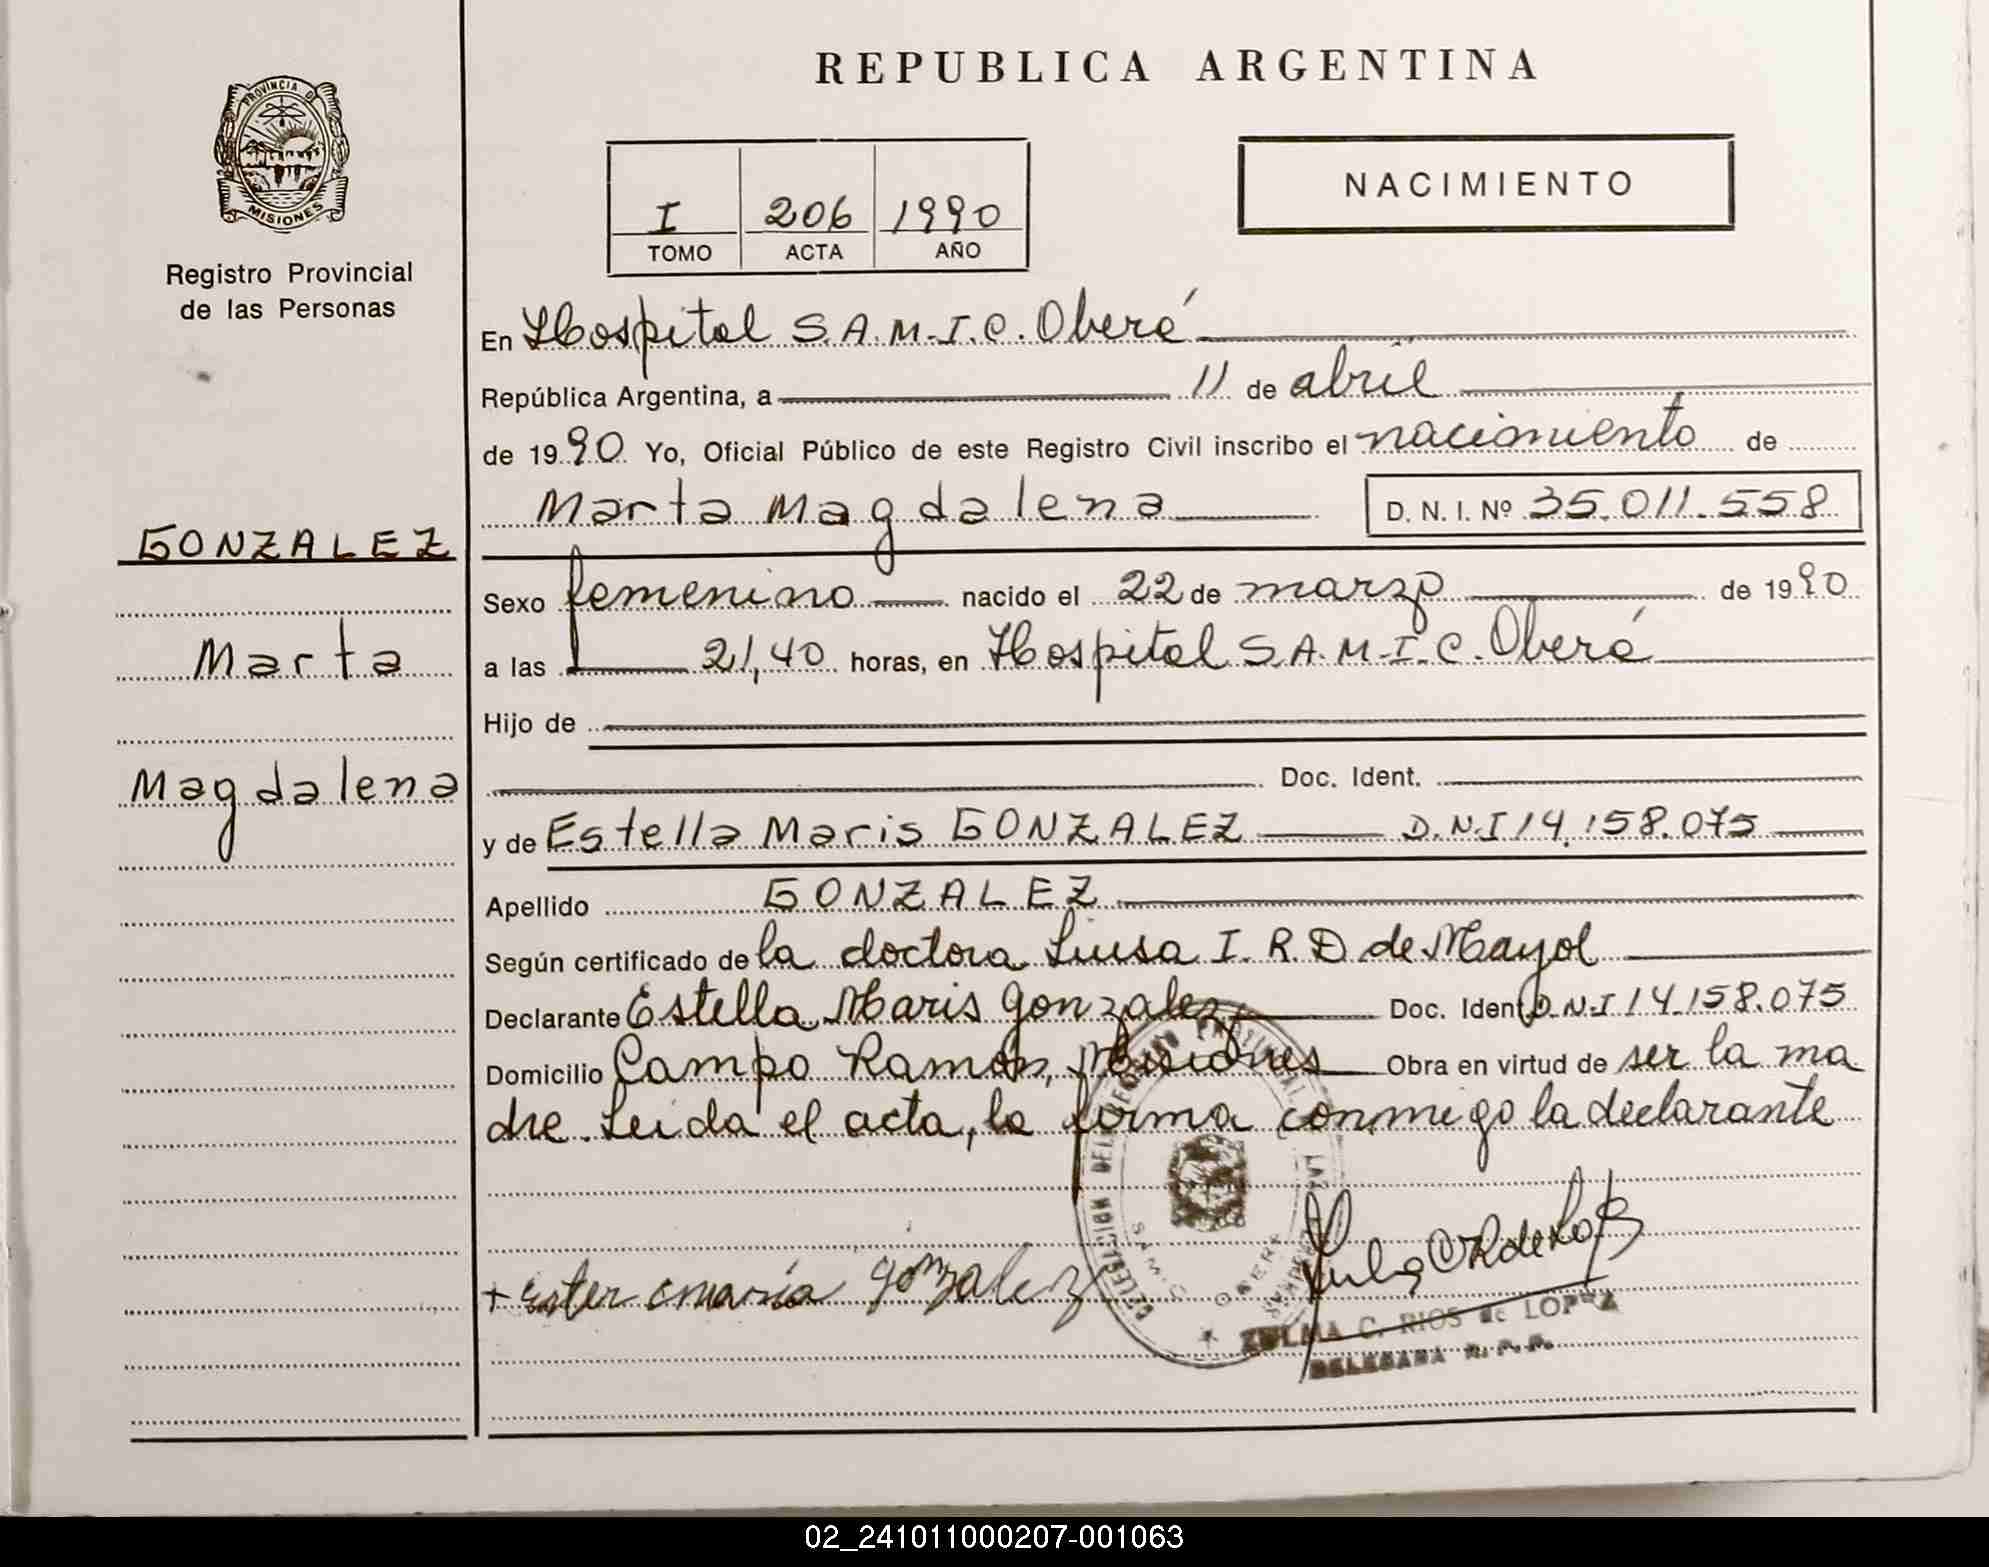 REPUBLICA ARGENTINA
PROVINCIA DE
MISIONES
Registro Provincial
de las Personas
I 206 1990
TOMO ACTA AÑO
NACIMIENTO
En Hospital S.A.M.I.C. Oberá
República Argentina, a 11 de abril
de 1990 Yo, Oficial Público de este Registro Civil inscribo el nacimiento de
Marta Magdalena D. N. I. Nº 35.011.558
GONZALEZ
Marta
Magdalena
Sexo femenino nacido el 22 de marzo de 1990
a las 21,40 horas, en Hospital S.A.M.I.C. Oberá
Hijo de
Doc. Ident.
y de Estella Maris GONZALEZ D.N.I 14.158.075
Apellido GONZALEZ
Según certificado de la doctora Luisa I. R. D de Mayol
Declarante Estella Maris Gonzalez Doc. Ident. D.N.I 14.158.075
Domicilio Campo Ramón, Misiones Obra en virtud de ser la ma
dre. Leida el acta, la firma conmigo la declarante
+ ester maría gonzalez
ZULMA C. RIOS de LOPEZ
DELEGADA R. P. P.
02_241011000207-001063